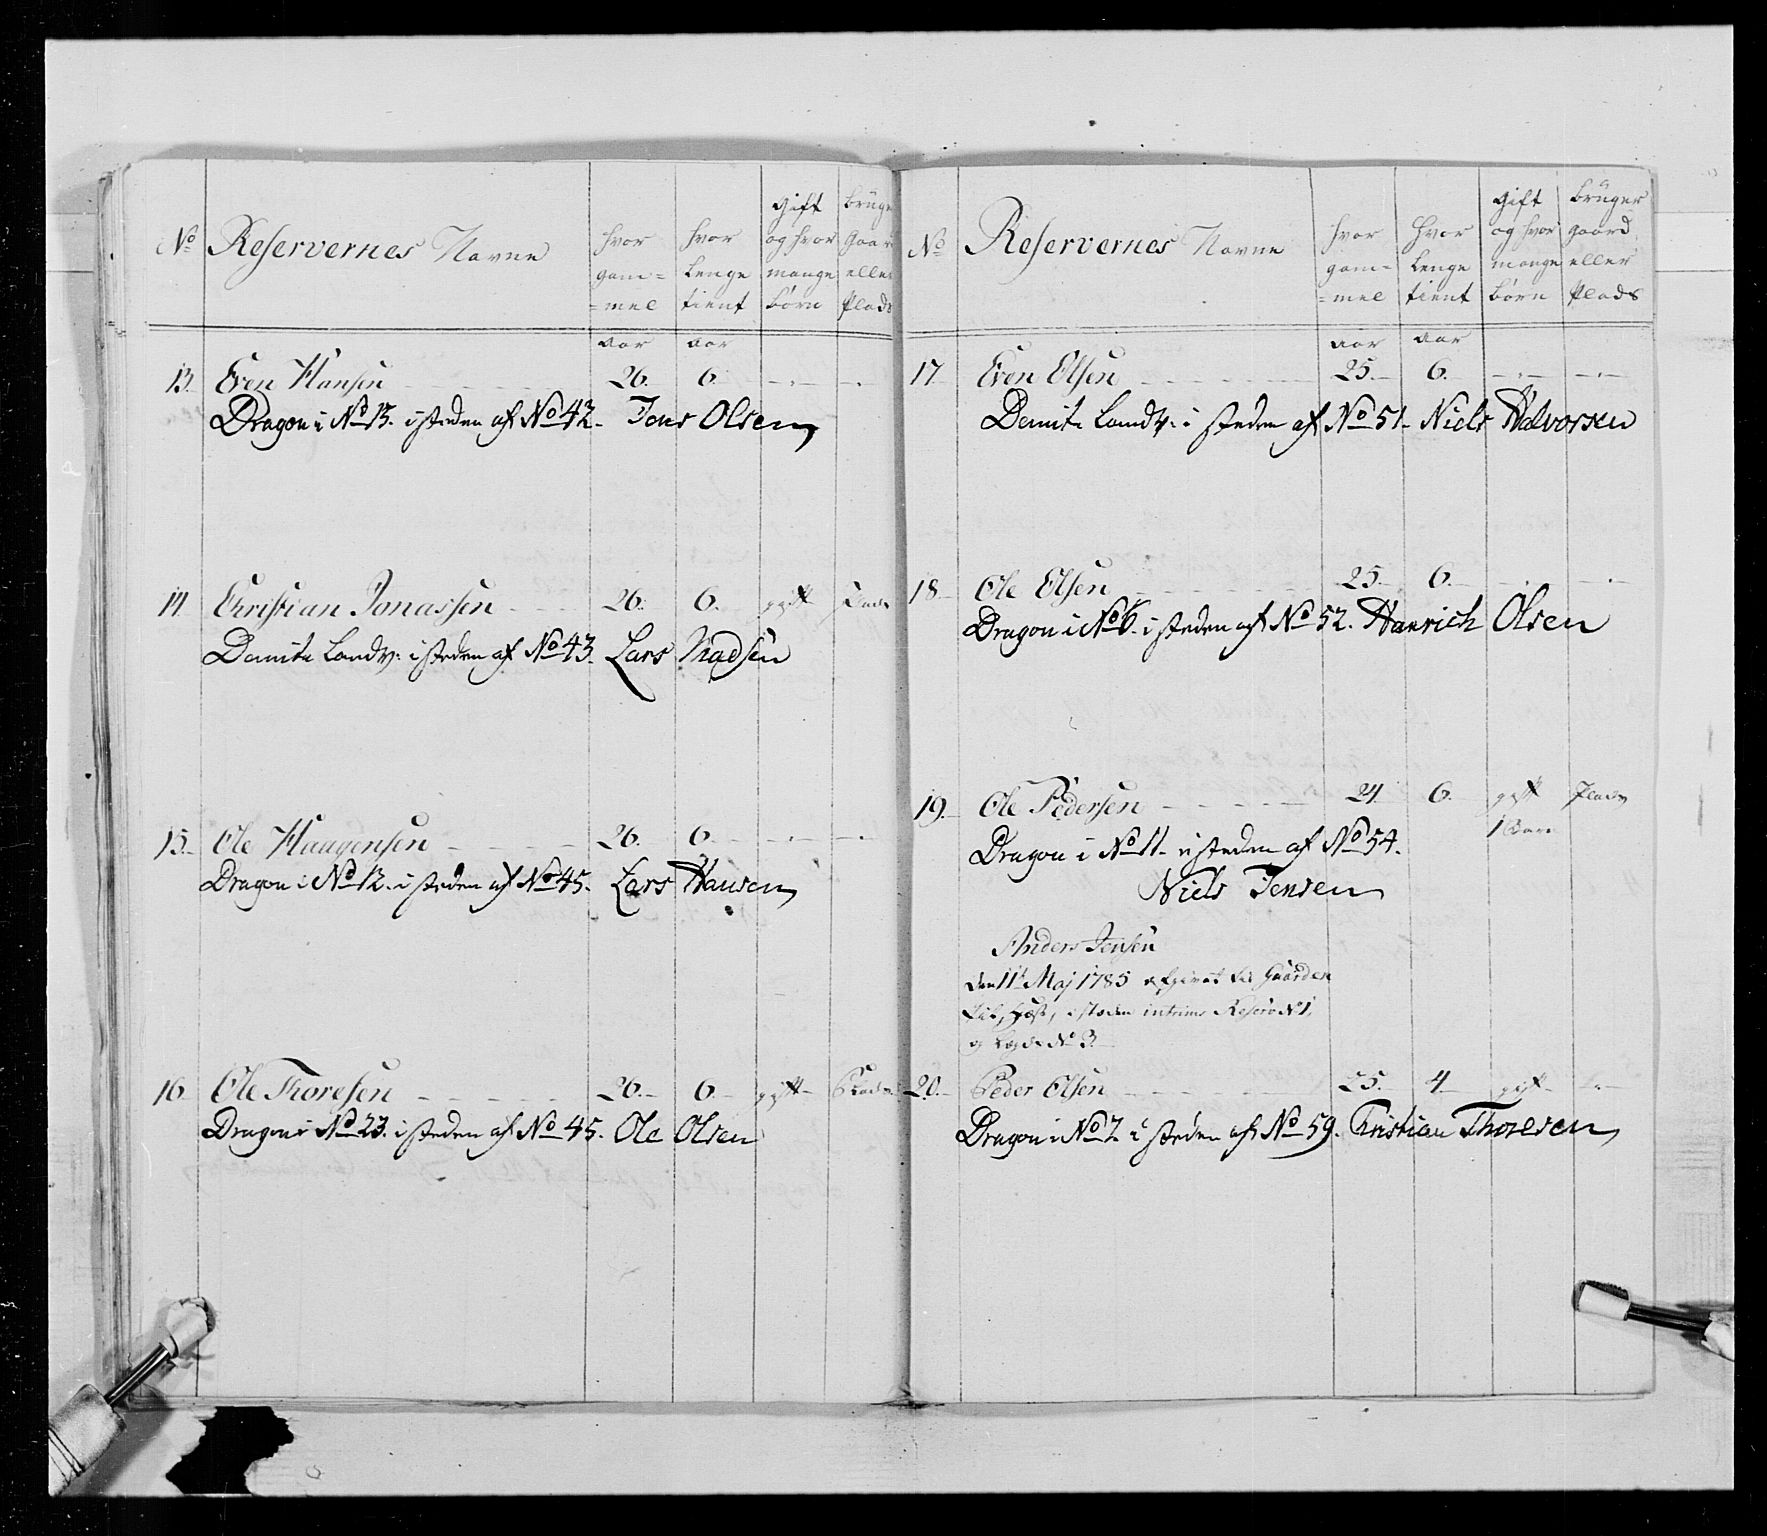 No Reservernes Navne hvor gam= =mel hvor Lenge tient Gift og hvor mange børn bruger Gaard eller Plads
aar aar
13. Even Hansen 26. 6.
Dragon i No 13. i steden af No 42. Jens Olsen
14. Christian Jonassen 26. 6. gift Plads
Damite Landv: i steden af No 43. Lars Madsen
15. Ole Haagensen 26. 6.
Dragon i No 12. i steden af No 45. Lars Hansen
16. Ole Thoresen 26. 6. gift Plads
Dragon i No 23. i steden af No 45. Ole Olsen
No Reservernes Navne hvor gam= =mel hvor Lenge tient Gift og hvor mange børn bruger gaard eller Plads
aar aar
17 Even Olsen 25. 6.
Damite Landv: i steden af No 51. Niels Halvorsen
18. Ole Olsen 25. 6.
Dragon i No 6. i steden af No 52. Hanrich Olsen
19. Ole Pedersen 24. 6. gift Plads
1 Barn
Dragon i No 11. i steden af No 54.
Niels Jensen
Anders Jensen
den 11t Maj 1785 afgivet til Gaarden
i steden intrims Reserv No 1,
og Lægde No 3.
20. Peder Olsen 25. 4 gift
Dragon i No 7. i steden af No 59. Christian Thoresen